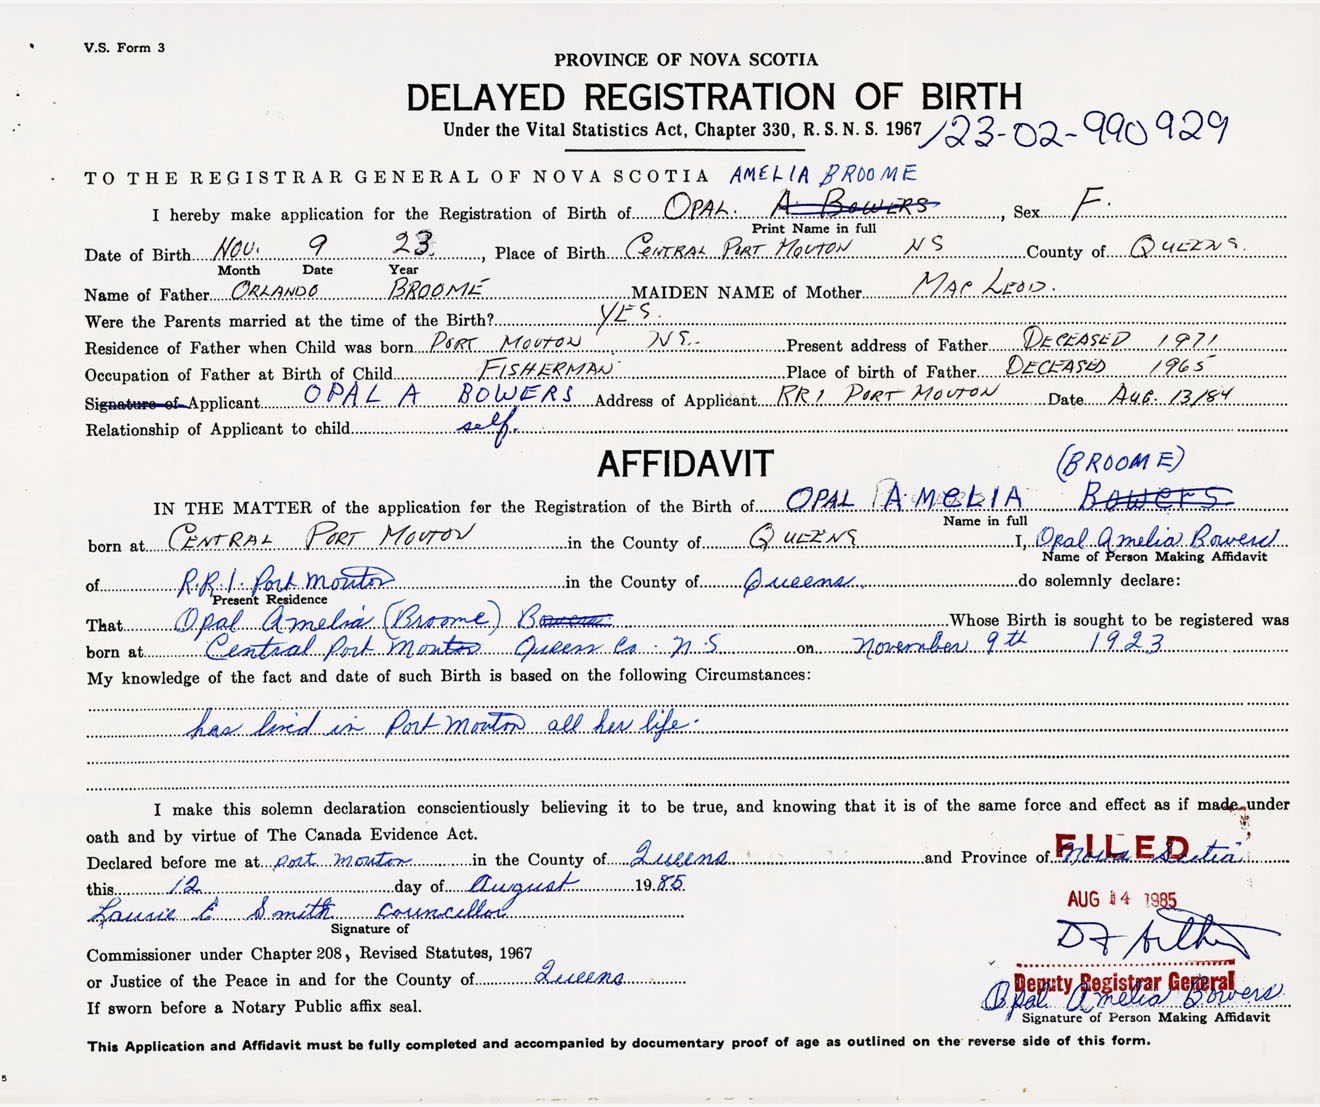 V.S. Form 3
PROVINCE OF NOVA SCOTIA
DELAYED REGISTRATION OF BIRTH
Under the Vital Statistics Act, Chapter 330, R.S.N.S. 1967 123-02-990929
TO THE REGISTRAR GENERAL OF NOVA SCOTIA AMELIA BROOME
I hereby make application for the Registration of Birth of OPAL. A BOWERS, Sex F.
Print Name in full
Date of Birth NOV. 9 23, Place of Birth CENTRAL PORT MOUTON NS County of QUEENS.
Month Date Year
Name of Father ORLANDO BROOME MAIDEN NAME of Mother MACLEOD.
Were the Parents married at the time of the Birth? YES.
Residence of Father when Child was born PORT MOUTON NS. Present address of Father DECEASED 1971
Occupation of Father at Birth of Child FISHERMAN Place of birth of Father DECEASED 1965
Signature of Applicant OPAL A BOWERS Address of Applicant RR1 PORT MOUTON Date AUG. 13/84
Relationship of Applicant to child self.
AFFIDAVIT (BROOME)
IN THE MATTER of the application for the Registration of the Birth of OPAL AMELIA Bowers
Name in full
born at CENTRAL PORT MOUTON in the County of QUEENS I, Opal Amelia Bowers
Name of Person Making Affidavit
of R.R.1. Port Mouton in the County of Queens do solemnly declare:
Present Residence
That Opal Amelia (Broome) Bowers Whose Birth is sought to be registered was
born at Central Port Mouton Queens Co. N.S on November 9th 1923
My knowledge of the fact and date of such Birth is based on the following Circumstances:
has lived in Port Mouton all her life.
I make this solemn declaration conscientiously believing it to be true, and knowing that it is of the same force and effect as if made under
oath and by virtue of The Canada Evidence Act.
Declared before me at port mouton in the County of Queens and Province of Nova Scotia
FILED
this 12 day of August 1985
AUG 14 1985
Laurie E Smith Councillor
Signature of
Commissioner under Chapter 208, Revised Statutes, 1967
or Justice of the Peace in and for the County of Queens
Deputy Registrar General
Opal Amelia Bowers
If sworn before a Notary Public affix seal.
Signature of Person Making Affidavit
This Application and Affidavit must be fully completed and accompanied by documentary proof of age as outlined on the reverse side of this form.
5